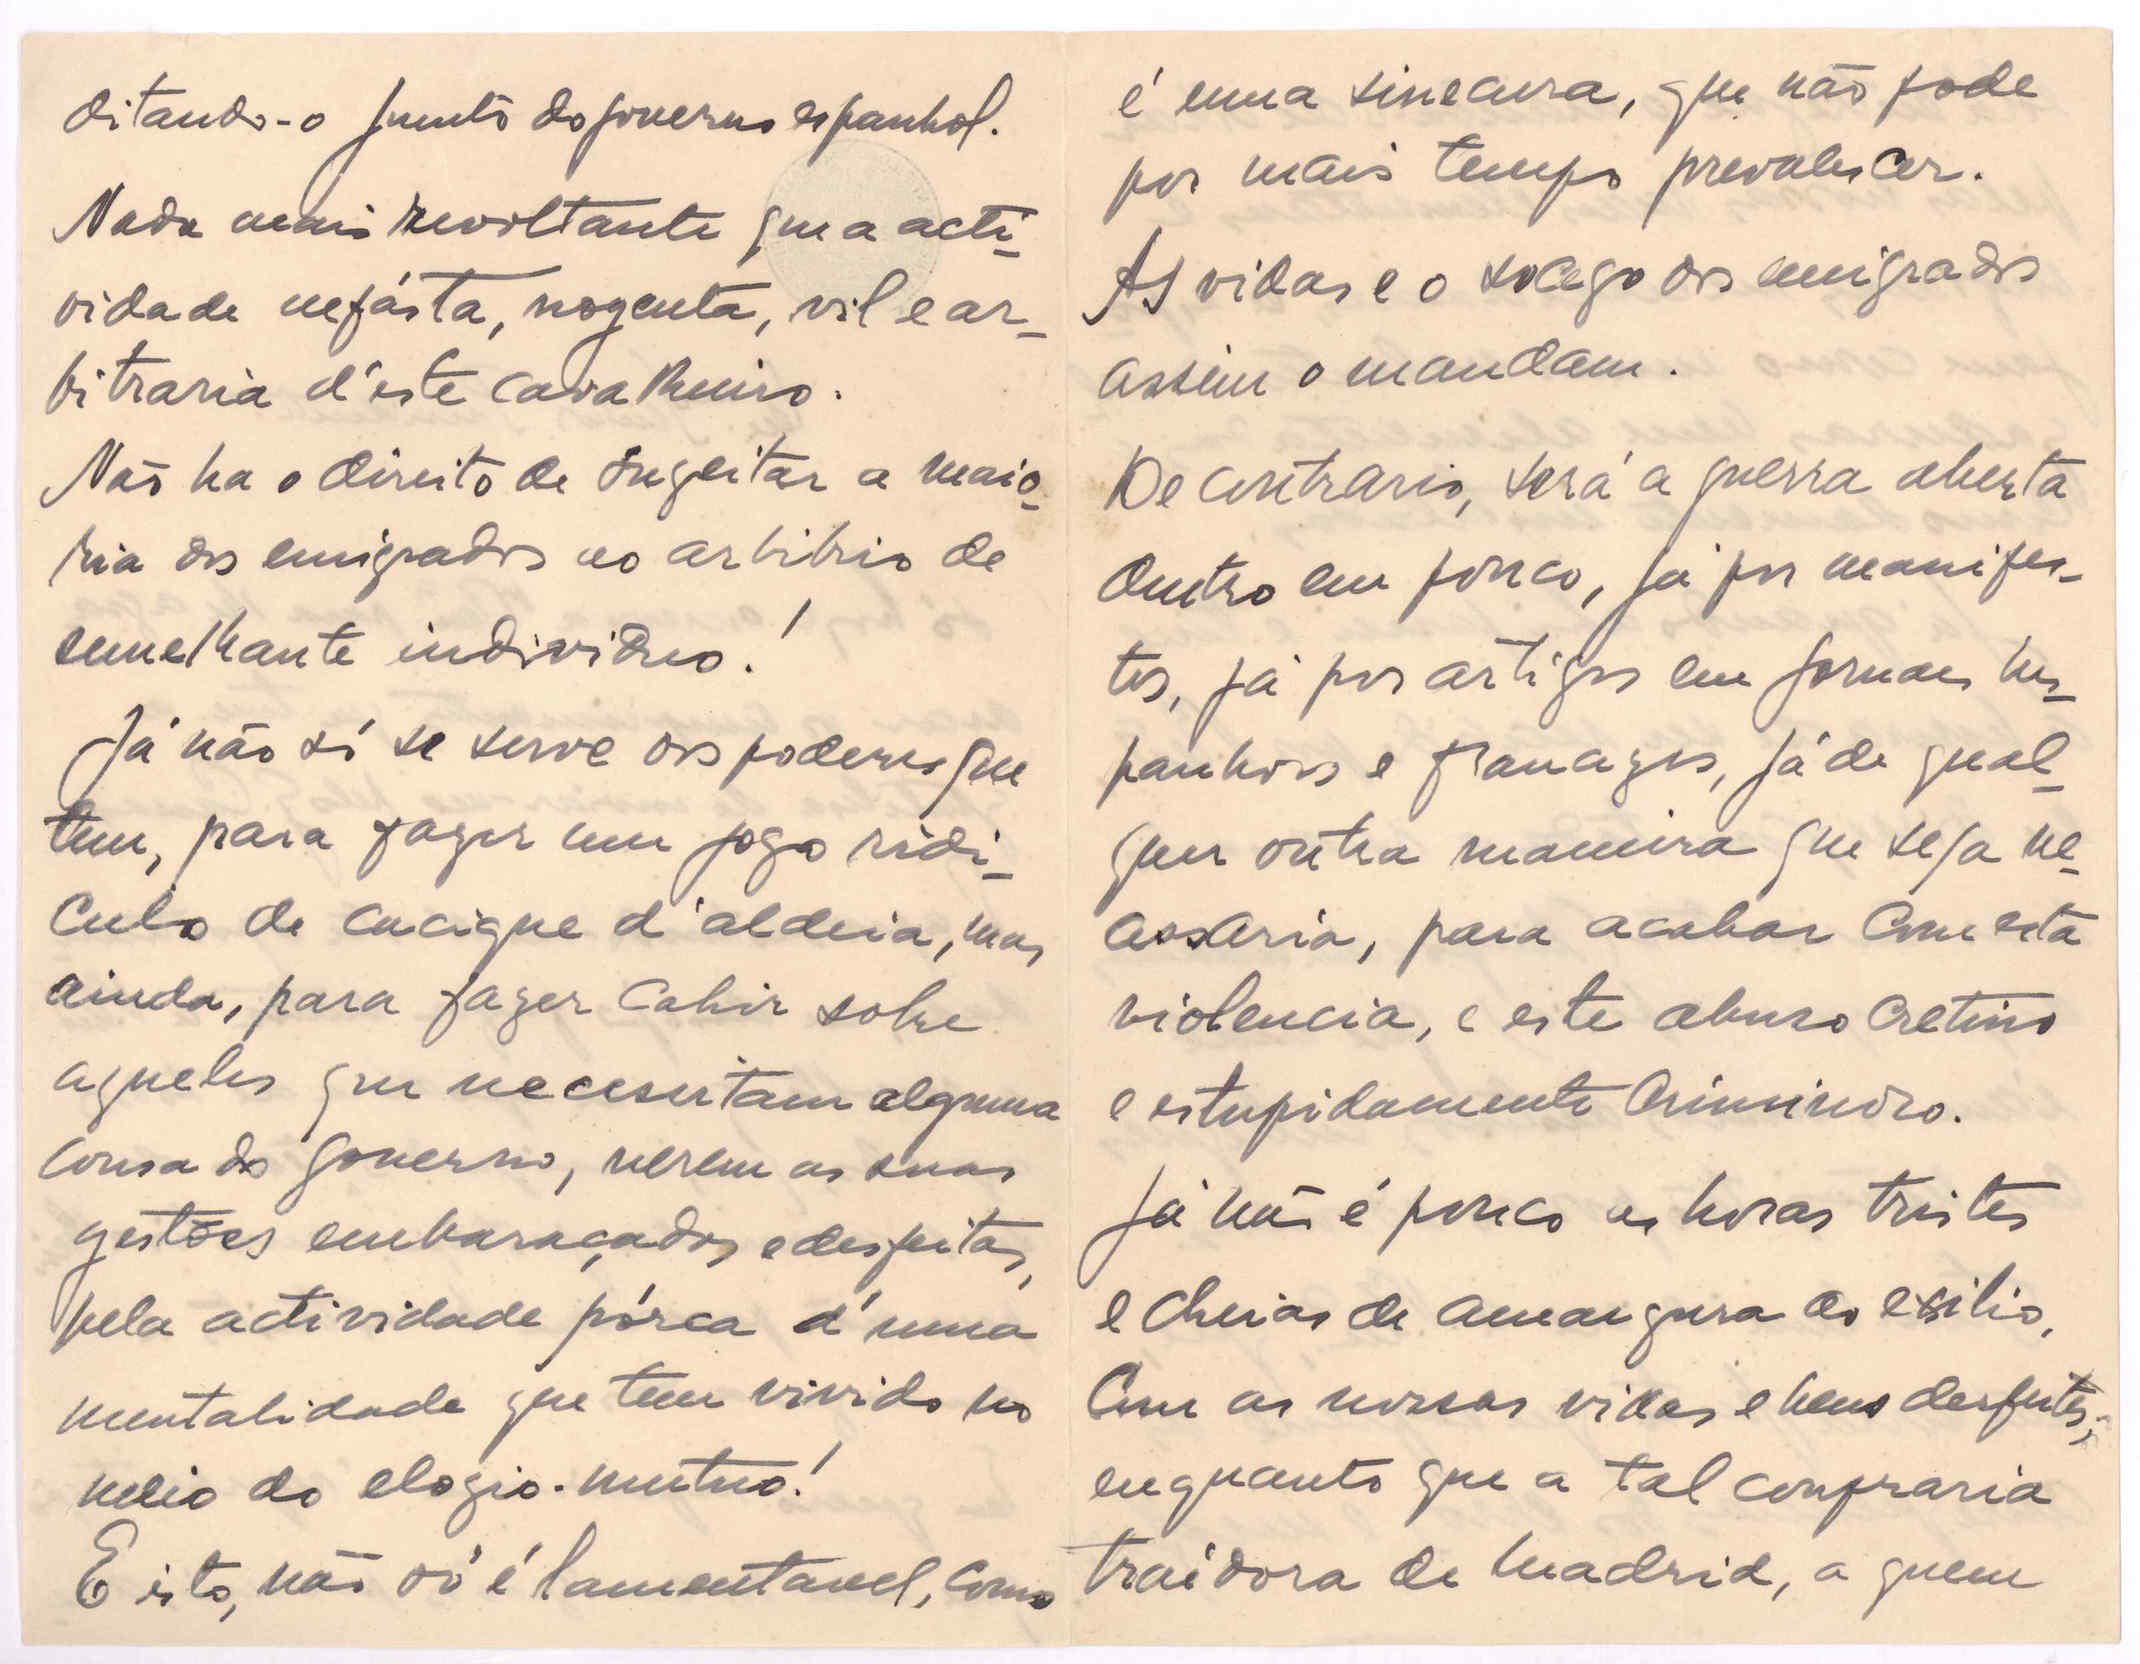 ditando-o junto do governo espanhol.
Nada mais revoltante que a acti-
vidade nefásta, nogenta, vil e ar-
bitraria d'este cavalheiro.
Não ha o direito de sugeitar a maio-
ria dos emigrados ao arbitrio de
semelhante individuo!
Já não só se serve dos poderes que
tem, para fazer um jogo ridi-
culo de cacique d'aldeia, mas
ainda, para fazer cahir sobre
aqueles que necesitam alguma
cousa do governo, verem as suas
gestões embaraçadas e desfeitas,
pela actividade pórca d'uma
mentalidade que tem vivido no
meio do elogio-mutuo!
E isto, não só é lamentavel, como
é uma sinecura, que não pode
por mais tempo prevalescer.
As vidas e o socego dos emigrados
assim o mandam.
De contrario, será a guerra aberta
dentro em pouco, já por manifes-
tos, já por artigos em jornaes hes-
panhoes e francezes, já de qual-
quer outra maneira que seja ne-
cessaria, para acabar com esta
violencia, e este abuso cretino
e estupidamente criminoso.
Já não é pouco as horas tristes
e cheias de amargura do exilio,
com as nossas vidas e bens desfeitos,
enquanto que a tal confraria
traidora de Madrid, a quem